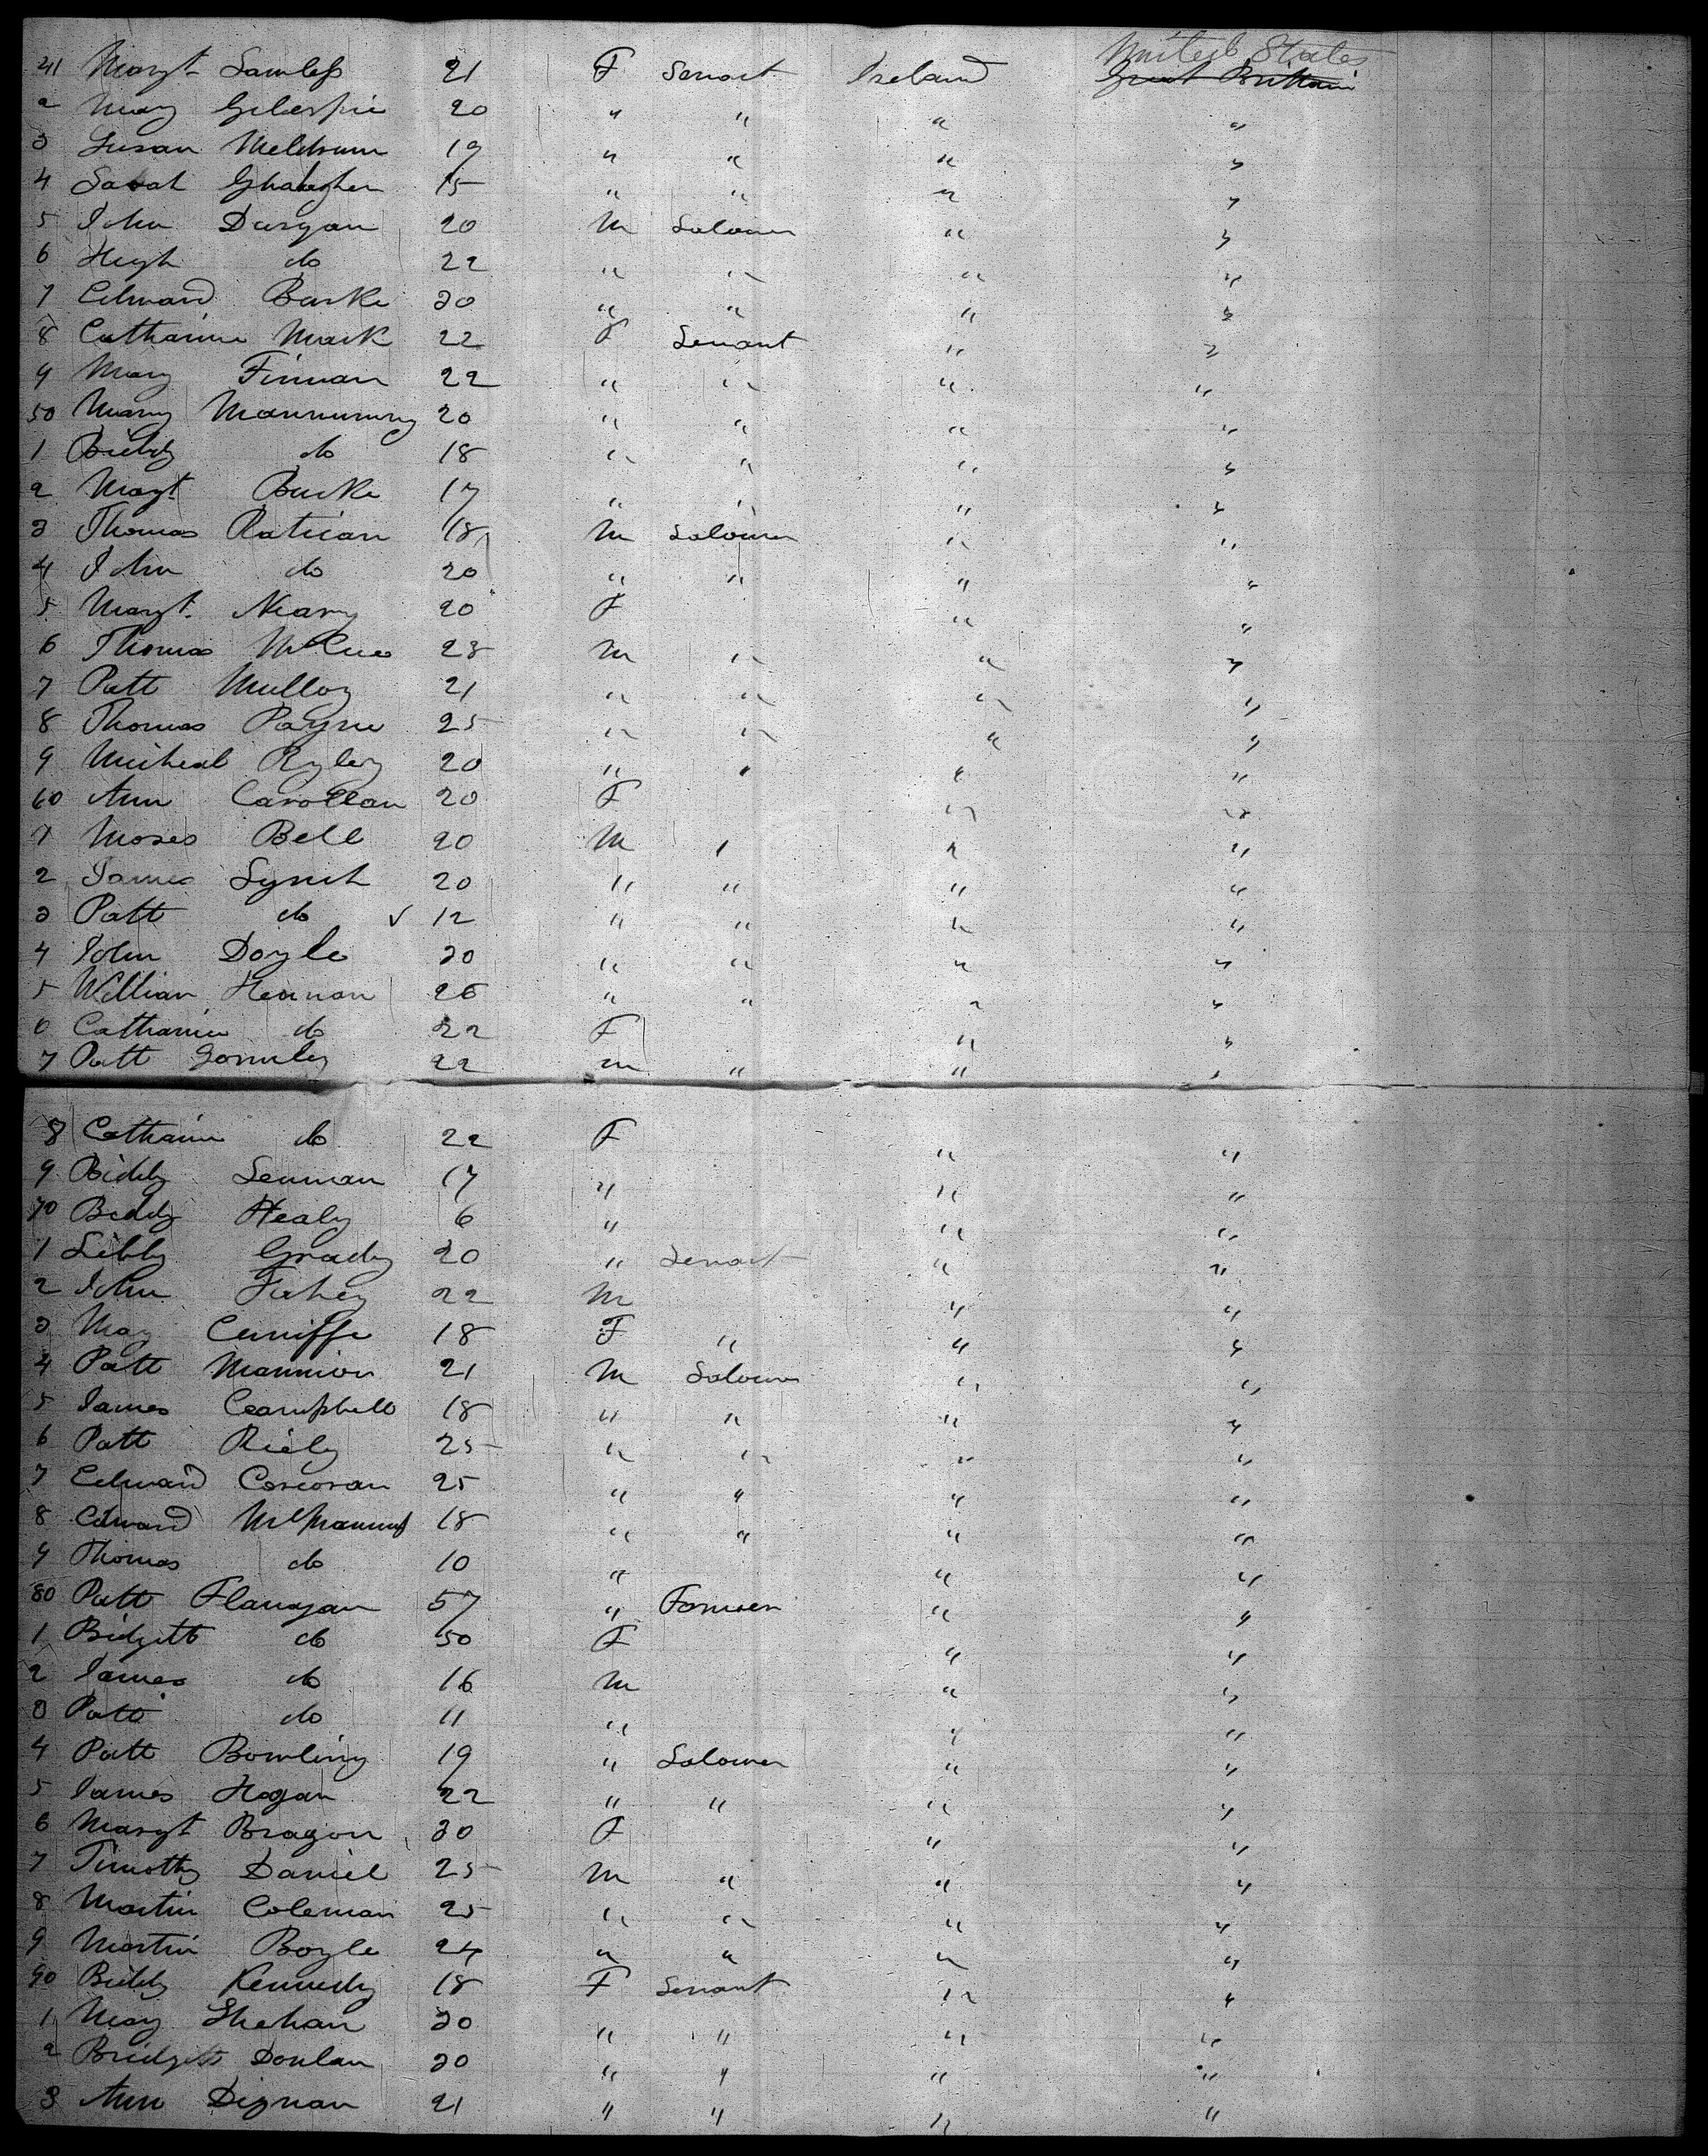 United States
41 Margt Lawless 21 F Servant Ireland Great Brittain
2 Mary Gilespie 20 " " " "
3 Susan Meldrum 19 " " " "
4 Sarah Ghalagher 15 " " " "
5 John Durgan 20 M Labourer " "
6 Hugh do 22 " " " "
7 Edward Burke 30 " " " "
8 Catharine Mack 22 F Servant " "
9 Mary Finnan 22 " " " "
50 Mary 20 " " " "
1 Biddy do 18 " " " "
2 Margt Burke 17 " " " "
3 Thomas Ratican 18 M Labourer " "
4 John do 20 " " " "
5 Margt Neary 20 F " "
6 Thomas McCue 28 M " " "
7 Patt Mulloy 21 " " " "
8 Thomas Payne 25 " " " "
9 Micheal Ryley 20 " " " "
60 Ann Carollan 20 F " "
1 Moses Bell 20 M " " "
2 James Lynch 20 " " " "
3 Patt do ✓ 12 " " " "
4 John Doyle 30 " " " "
5 William Heanan 26 " " " "
6 Catharine do 22 F " "
7 Patt Gormley 22 M " " "
8 Catharin do 22 F " "
9 Biddy Lennan 17 " " "
70 Biddy Healy 6 " " "
1 Libby Grady 20 " Servant " "
2 John Fahey 22 M " "
3 May Cuniffe 18 F " " "
4 Patt Mannion 21 M Labourer " "
5 James Ceampbell 18 " " " "
6 Patt Riely 25 " " " "
7 Edward Corcoran 25 " " " "
8 Edward McManus 18 " " " "
9 Thomas do 10 " " "
80 Patt Flanagan 57 " Farmer " "
1 Bidgett do 50 F " "
2 James do 16 M " "
3 Patt do 11 " " "
4 Patt Bowling 19 " Labourer " "
5 James Hogan 22 " " " "
6 Margt Bragon 30 F " "
7 Timothy Daniel 25 M " " "
8 Martin Coleman 25 " " " "
9 Martin Boyle 24 " " " "
90 Biddy Kennedy 18 F Servant " "
1 May Shehan 30 " " " "
2 Bridgett Donlan 30 " " " "
3 Ann Dignan 21 " " " "